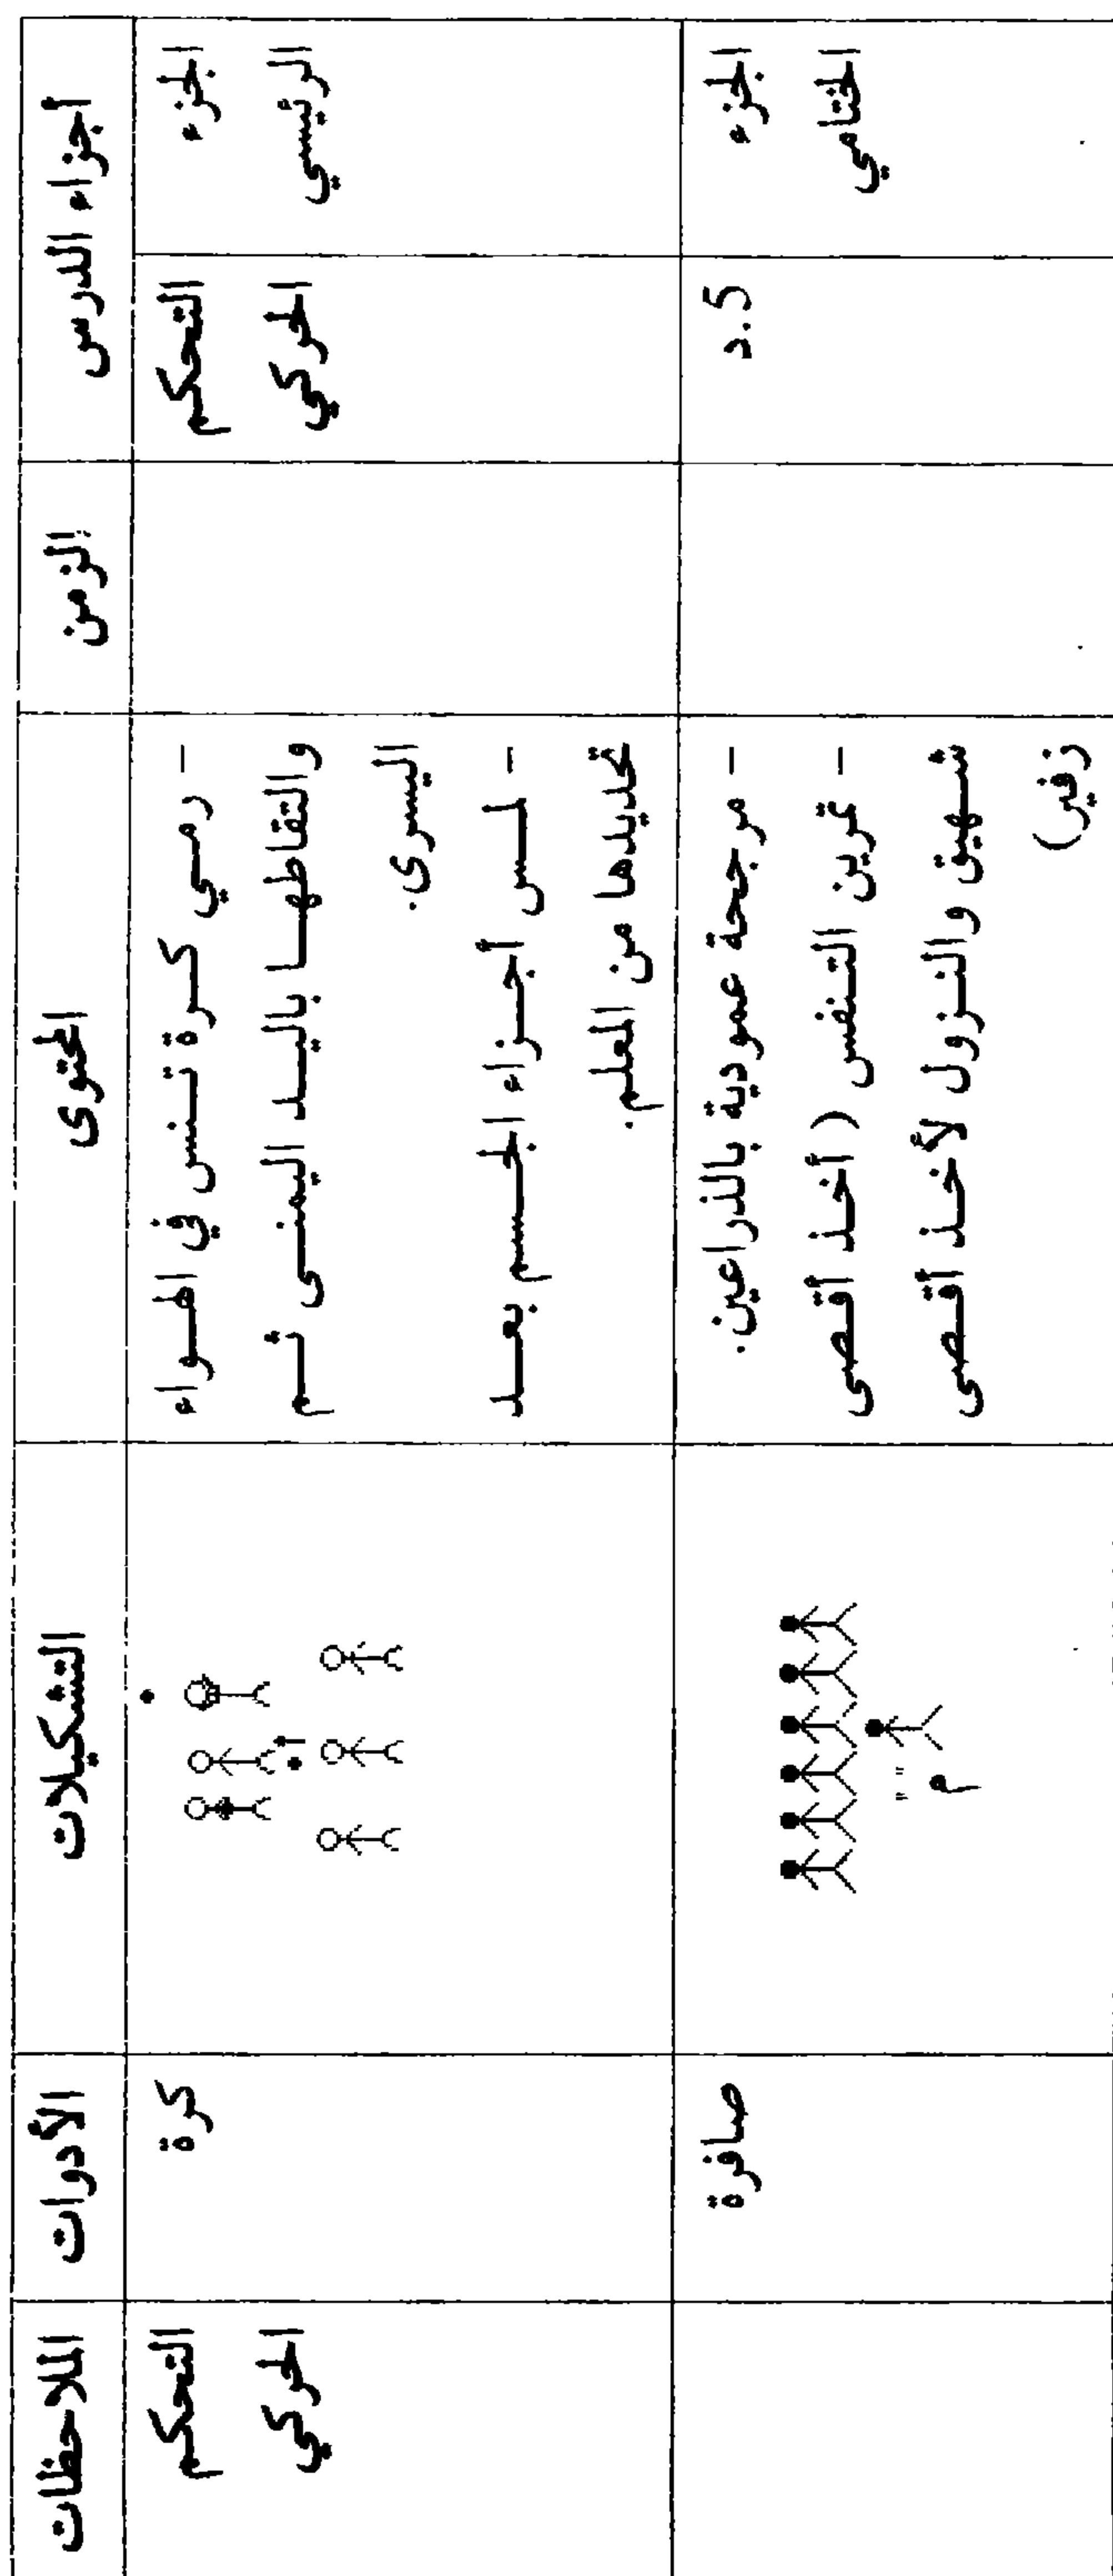 أجزاء الدرس
الزمن
المحتوى
التشكيلات
الأدوات
الملاحظات
الجزء
الرئيسي
التحكم
الحركي
- رمي كرة تنس في الهواء
والتقاطها باليد اليمنى ثم
اليسرى.
- لمس أجزاء الجسم بعد
تحديدها من المعلم.
كرة
التحكم
الحركي
الجزء
الختامي
5.د
- مرجحة عمودية بالذراعين.
- تمرين التنفس ( أخذ أقصى
شهيق والنزول لأخذ أقصى
زفير)
"م"
صافرة